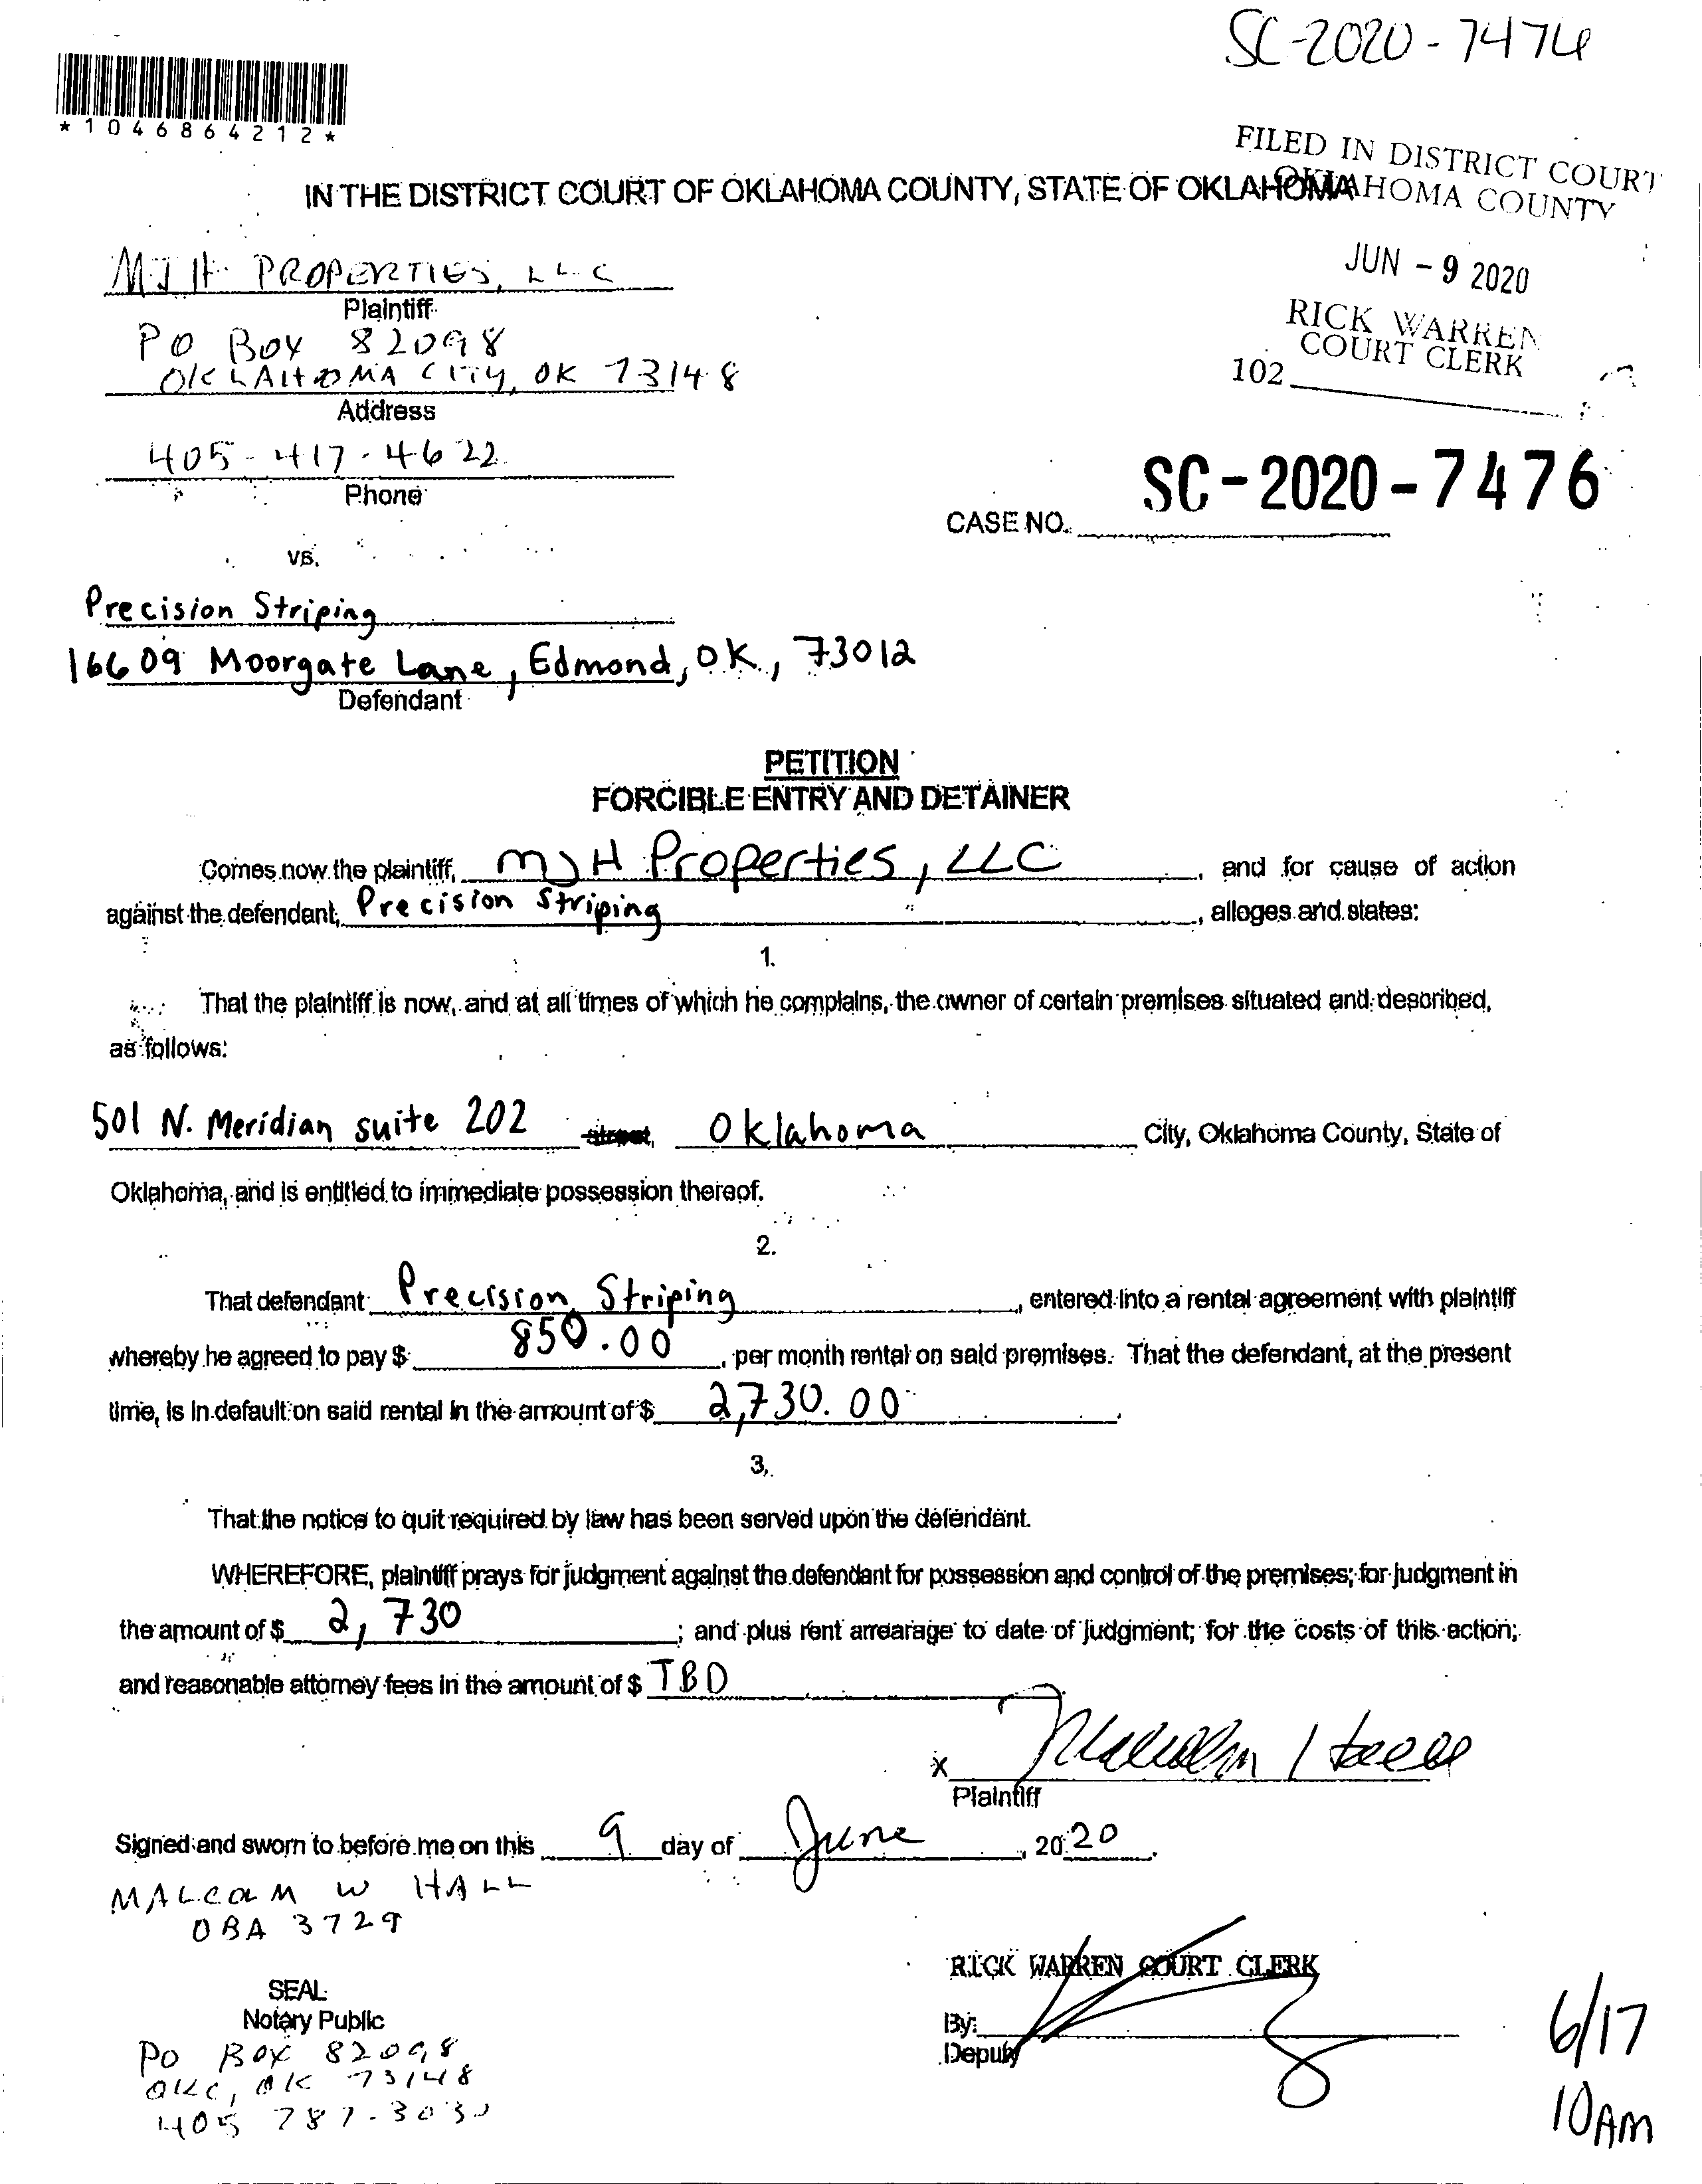 SC-2020-7476
*1046864212*
FILED IN DISTRICT COURT
OKLAHOMA COUNTY
IN THE DISTRICT COURT OF OKLAHOMA COUNTY, STATE OF OKLAHOMA
JUN - 9 2020
RICK WARREN
COURT CLERK
102
MJH PROPERTIES, LLC
Plaintiff
PO BOX 82098
OKLAHOMA CITY, OK 73148
Address
405-417-4622
Phone
SC-2020-7476
CASE NO.
vs.
Precision Striping
16609 Moorgate Lane, Edmond, OK, 73012
Defendant
PETITION
FORCIBLE ENTRY AND DETAINER
Comes now the plaintiff, MJH Properties, LLC, and for cause of action
against the defendant, Precision Striping, alleges and states:
1.
That the plaintiff is now, and at all times of which he complains, the owner of certain premises situated and described,
as follows:
501 N. Meridian suite 202 street, Oklahoma City, Oklahoma County, State of
Oklahoma, and is entitled to immediate possession thereof.
2.
That defendant Precision Striping, entered into a rental agreement with plaintiff
whereby he agreed to pay $ 850.00, per month rental on said premises. That the defendant, at the present
time, is in default on said rental in the amount of $ 2,730.00.
3.
That the notice to quit required by law has been served upon the defendant.
WHEREFORE, plaintiff prays for judgment against the defendant for possession and control of the premises; for judgment in
the amount of $ 2,730; and plus rent arrearage to date of judgment; for the costs of this action;
and reasonable attorney fees in the amount of $ TBD
x Malcolm Hall
Plaintiff
Signed and sworn to before me on this 9 day of June, 2020.
MALCOLM W HALL
OBA 3729
RICK WARREN COURT CLERK
SEAL
Notary Public
By:
Deputy
PO BOX 82098
OKC, OK 73148
405 787-3030
6/17
10AM